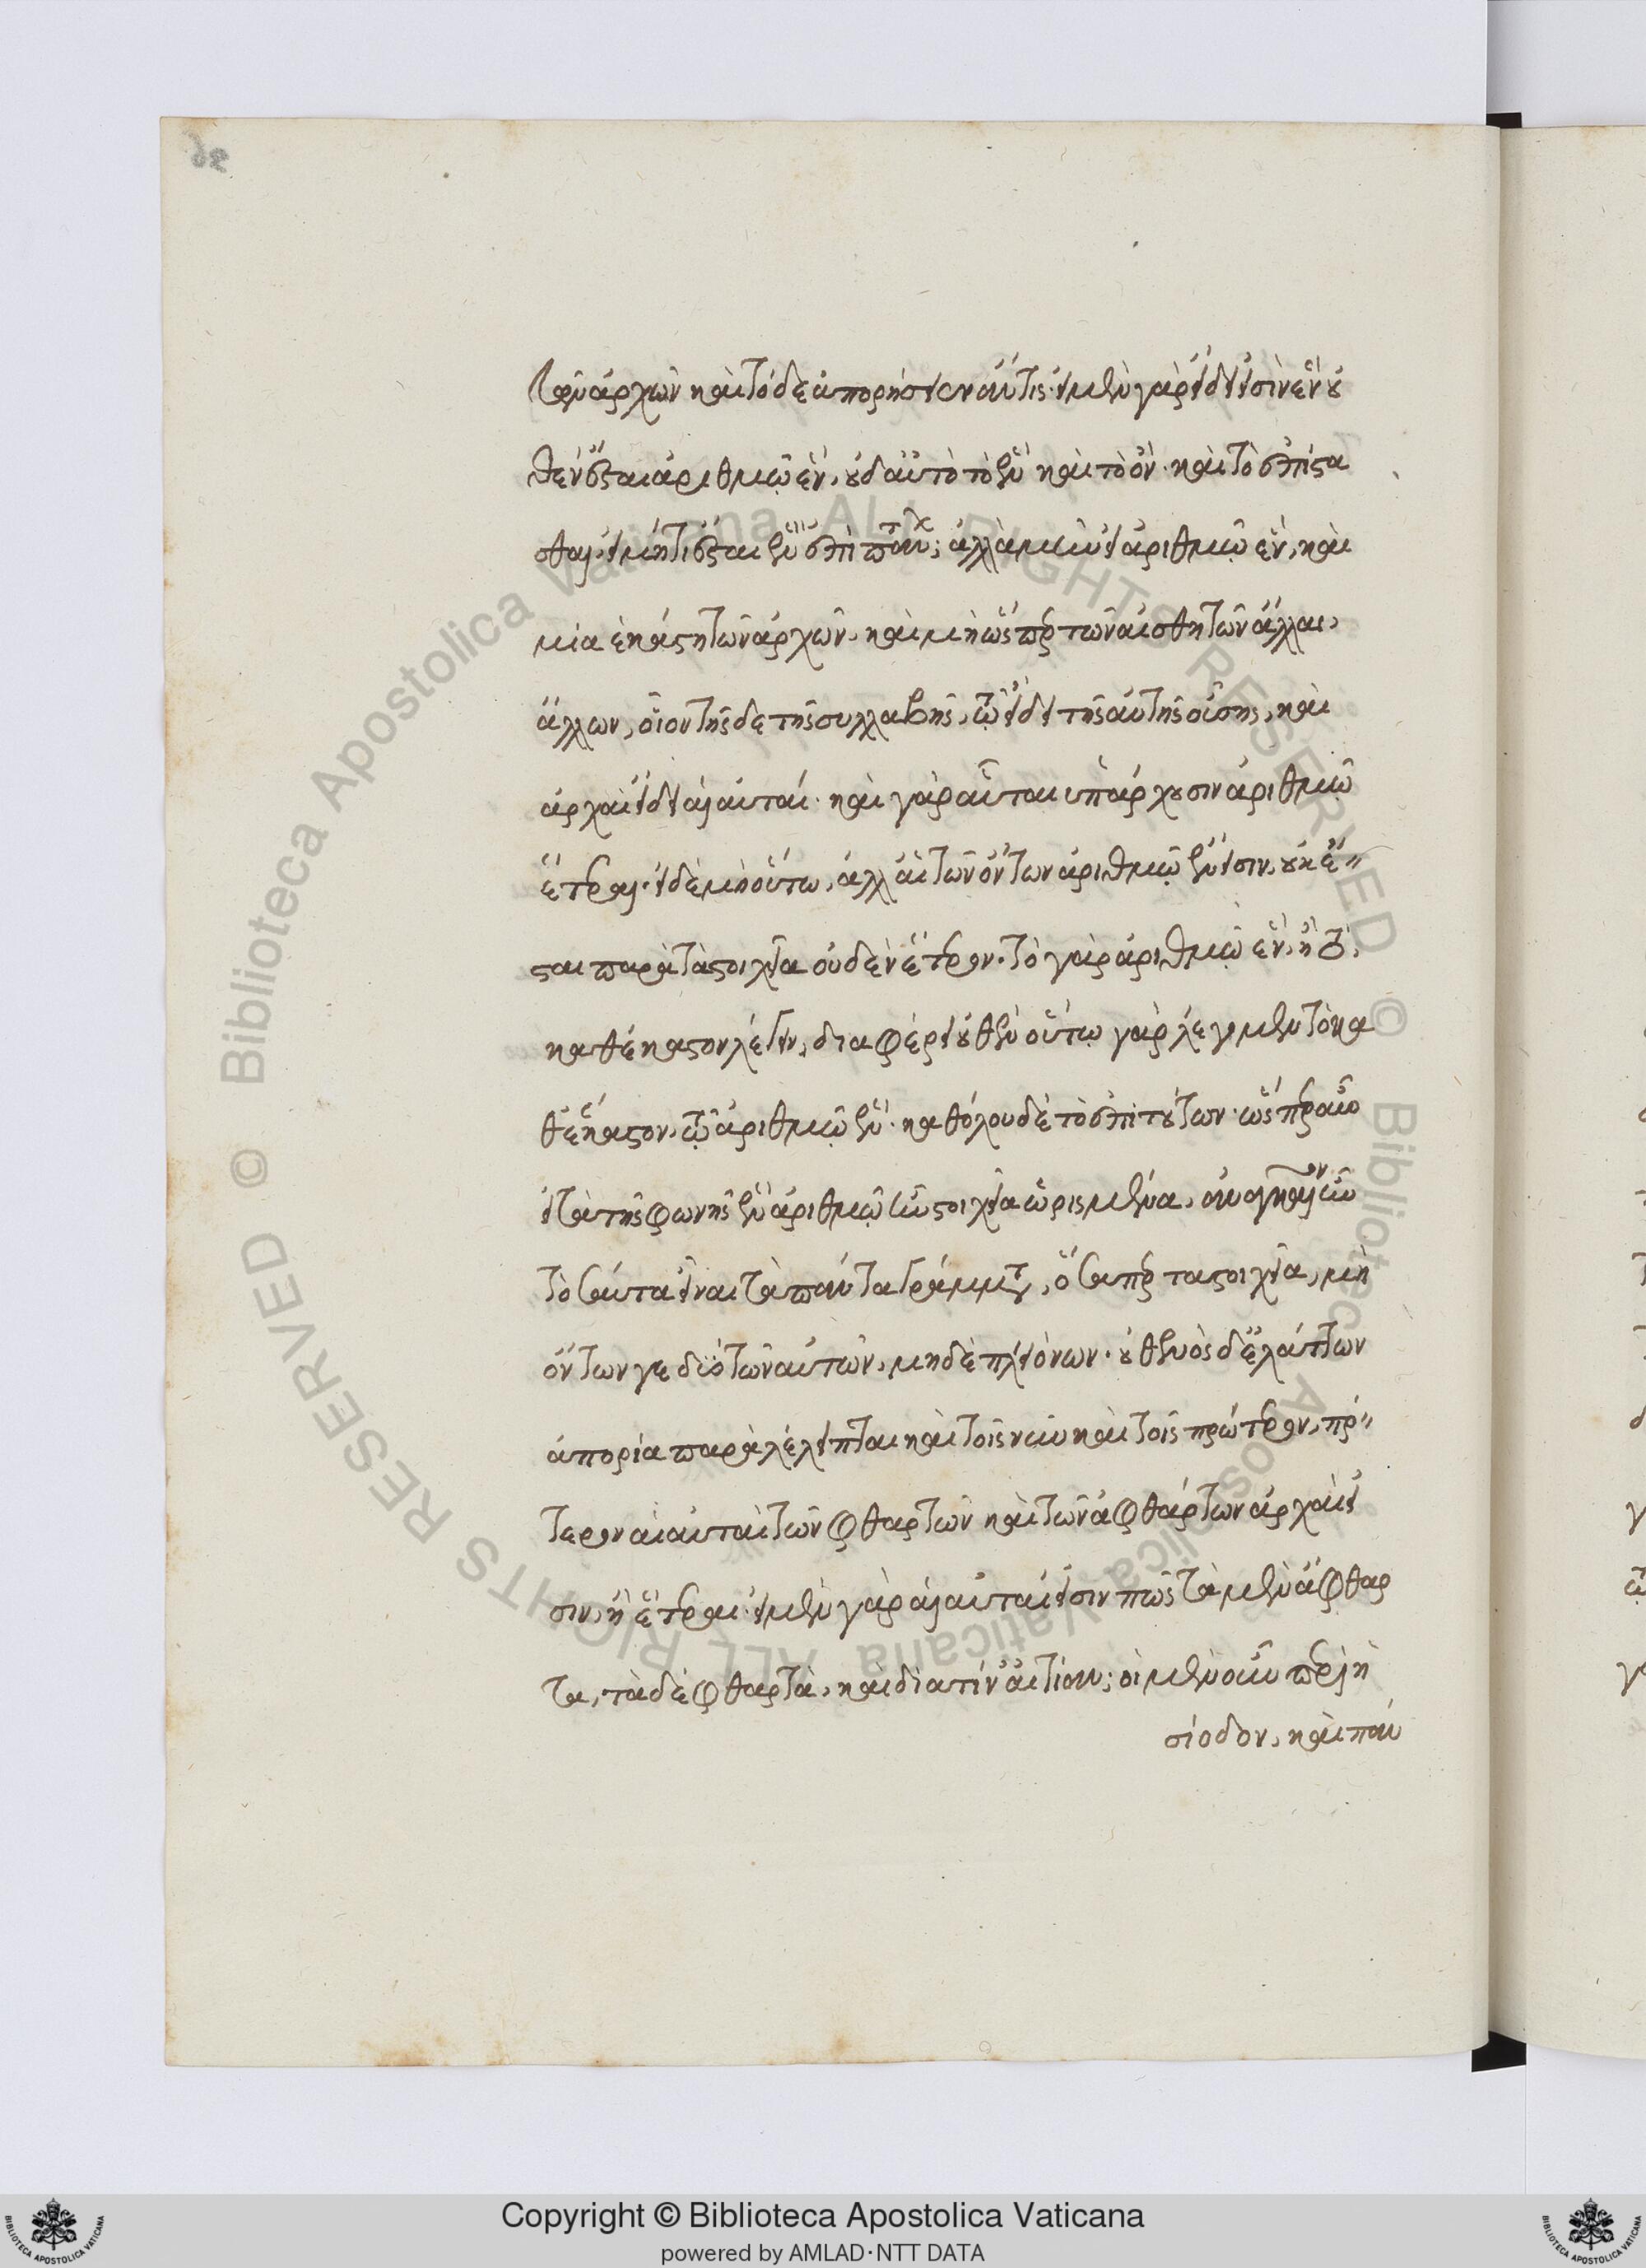 τῶν ἀρχῶν καὶ τόδε ἀπορήσειεν ἄν τις· εἰ μὲν γὰρ εἴδει εἰσὶν ἓν, οὐ
θὲν ἔσται ἀριθμῷ ἓν, οὐδ' αὐτὸ τὸ ἓν καὶ τὸ ὄν· καὶ τὸ ἐπίστα
σθαι, εἰ μή τι ἔσται ἓν ἐπὶ πάντων; ἀλλὰ μὴν εἰ ἀριθμῷ ἓν, καὶ
μία ἑκάστη τῶν ἀρχῶν, καὶ μὴ ὥσπερ τῶν αἰσθητῶν ἄλλαι,
ἄλλων, οἷον τῆσδε τῆς συλλαβῆς, τῷ εἴδει τῆς αὐτῆς οὔσης, καὶ
ἀρχαὶ εἴδει αἱ αὐταί· καὶ γὰρ αὗται ὑπάρχουσιν ἀριθμῷ
ἕτεραι· εἰ δὲ μὴ οὕτω, ἀλλ' αἱ τῶν ὄντων ἀριθμῷ ἕν εἰσιν, οὐκ ἔ
σται παρὰ τὰ στοιχεῖα οὐδὲν ἕτερον· τὸ γὰρ ἀριθμῷ ἓν, ἢ τὸ
καθέκαστον λέγειν, διαφέρει οὐθέν· οὕτω γὰρ λέγομεν τὸ κα
θέκαστον, τῷ ἀριθμῷ ἕν· καθόλου δὲ τὸ ἐπὶ τούτων· ὥσπερ οὖν
εἰ τὰ τῆς φωνῆς ἓν ἀριθμῷ ἦν στοιχεῖα ὡρισμένα, ἀναγκαῖον ἦν
τοσαῦτα εἶναι τὰ πάντα γράμματα, ὅσαπερ τὰ στοιχεῖα, μὴ
ὄντων γε δύο τῶν αὐτῶν, μηδὲ πλειόνων· οὐθενὸς δ' ἐλάττων
ἀπορία παραλέλειπται καὶ τοῖς νῦν καὶ τοῖς πρότερον, πό
τερον αἱ αὐταὶ τῶν φθαρτῶν καὶ τῶν ἀφθάρτων ἀρχαὶ εἰ
σιν, ἢ ἕτεραι· εἰ μὲν γὰρ αἱ αὐταί εἰσιν πῶς τὰ μὲν ἄφθαρ
τα, τὰ δὲ φθαρτὰ, καὶ διὰ τίν' αἰτίαν; οἱ μὲν οὖν περὶ ἡ
σίοδον, καὶ πάν
Copyright © Biblioteca Apostolica Vaticana
powered by AMLAD·NTT DATA